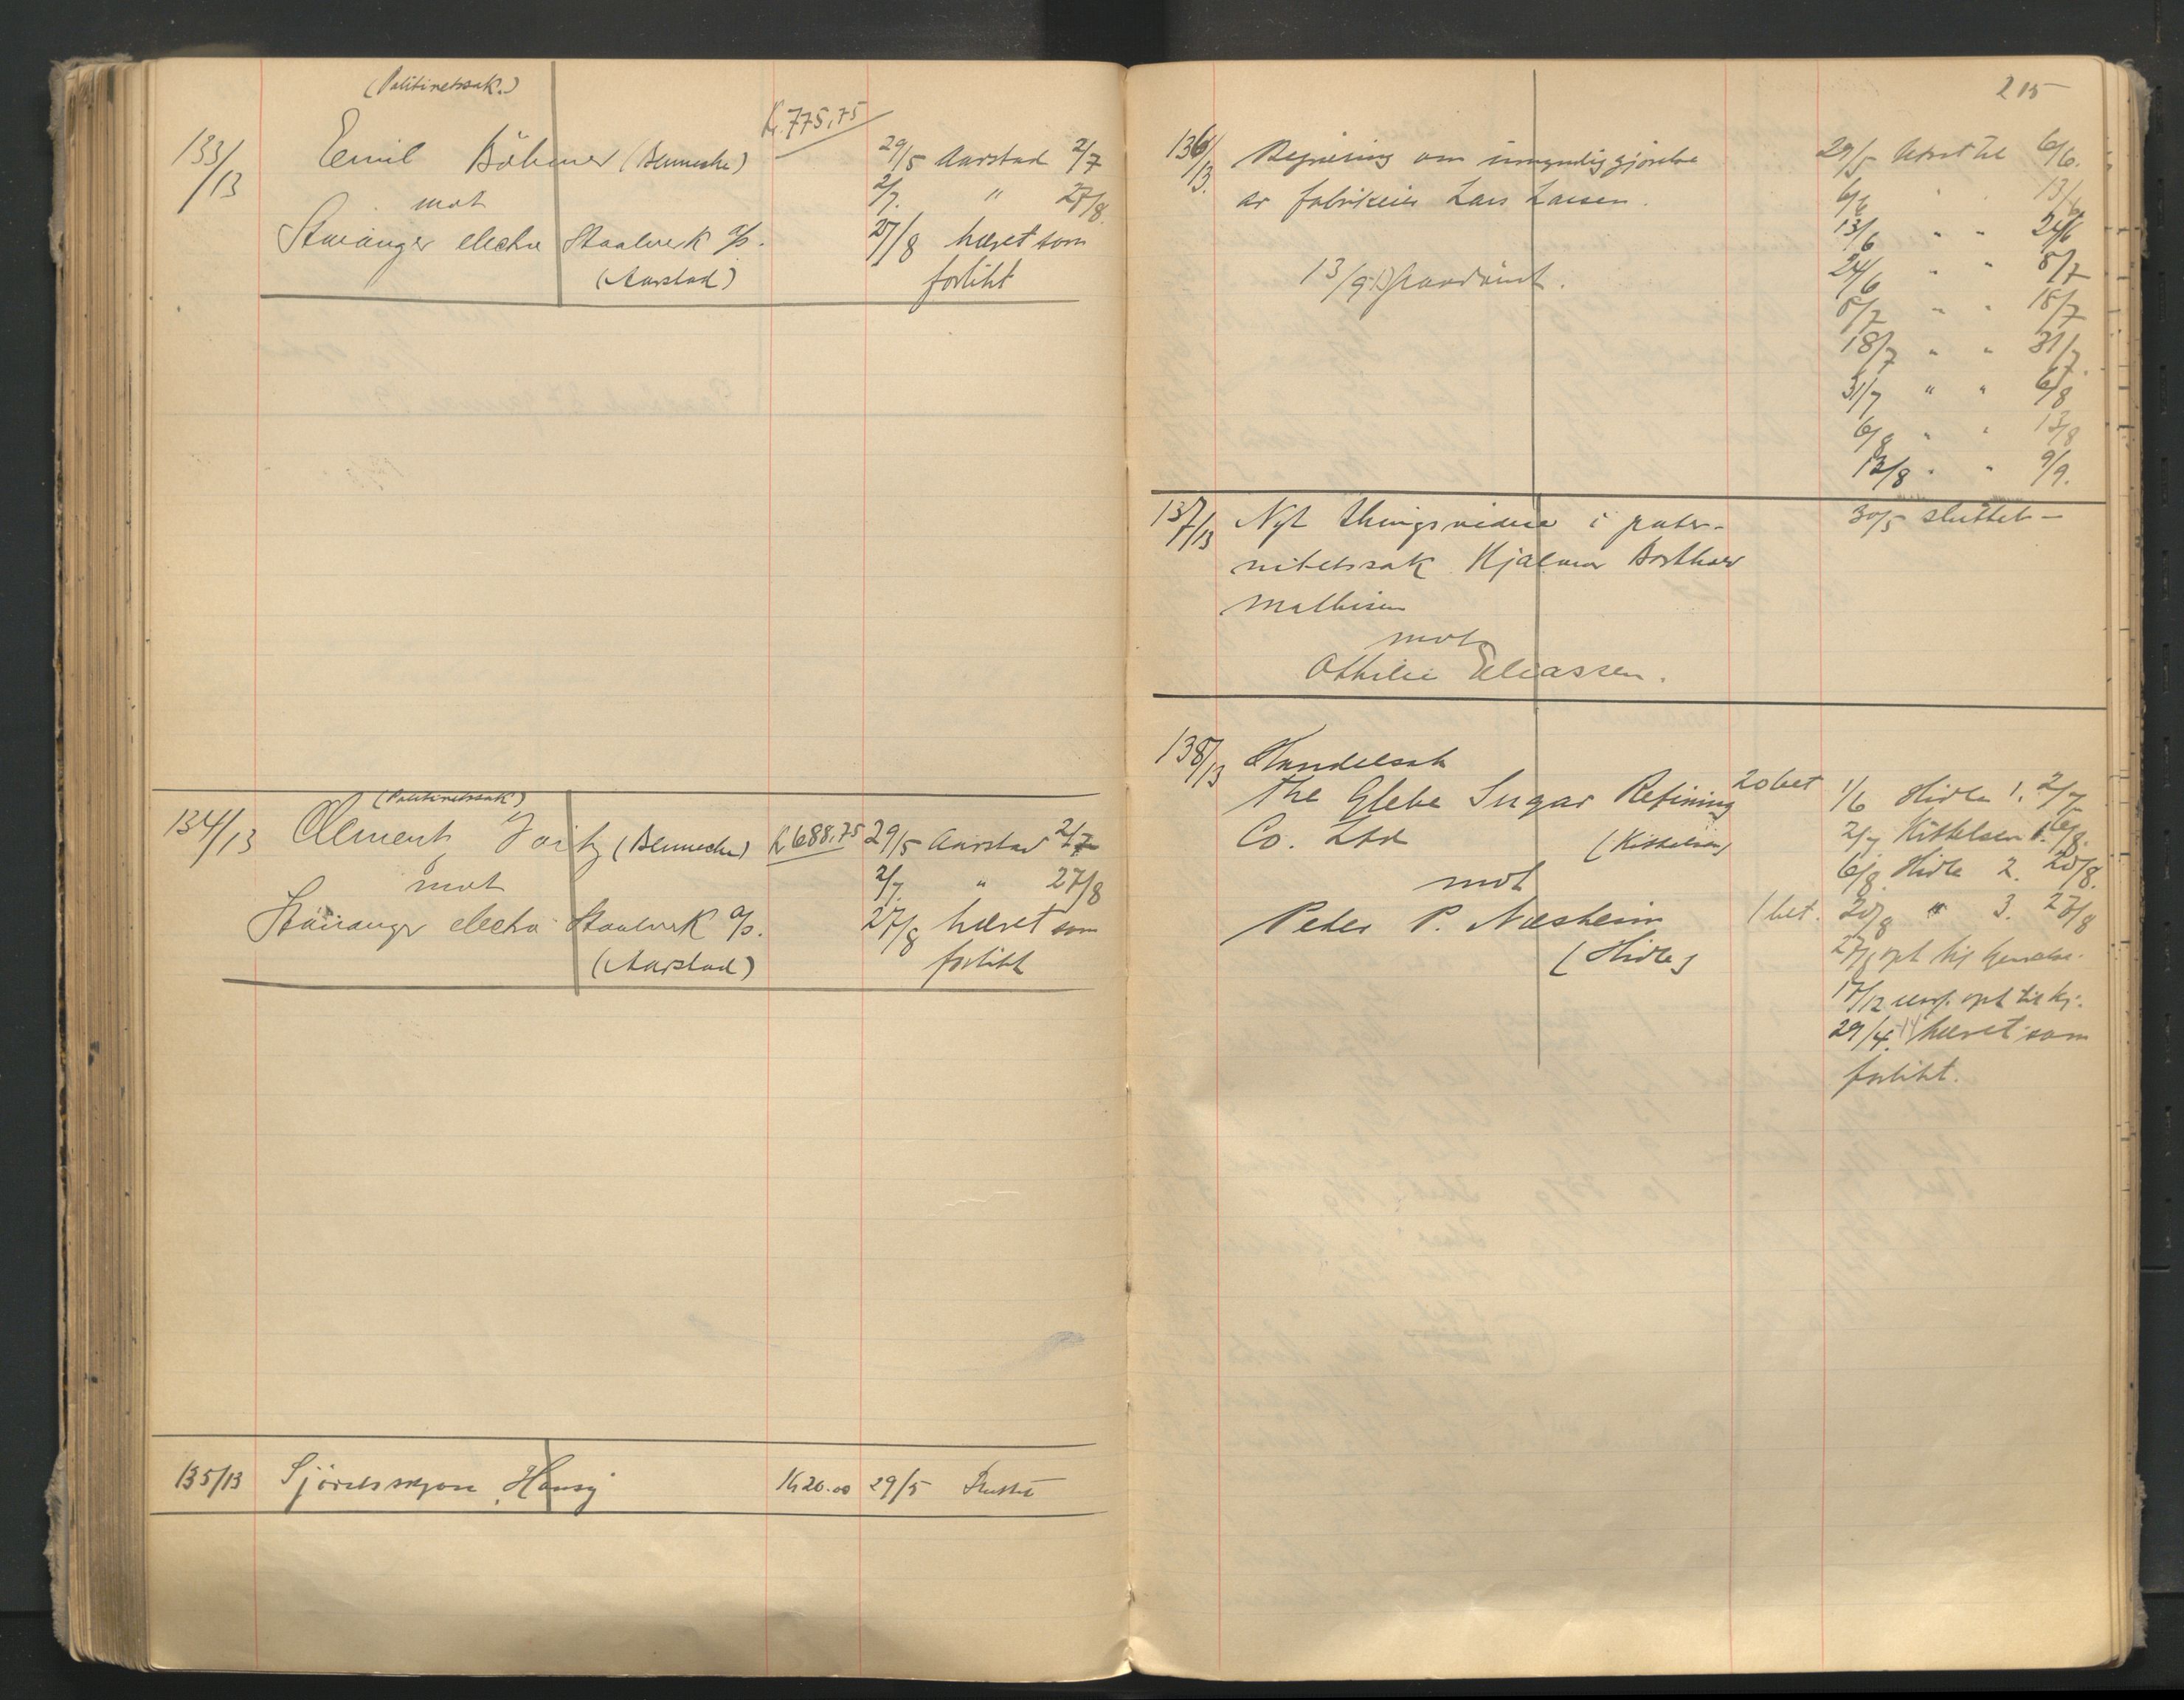 (Politiretssak.)
133/13 Emil Böhmer (Benneche) K. 775,75 29/5 Aarstad 2/7
mot 2/7. " 27/8.
Stavanger electro Staalverk a/s. 27/8 hævet som
(Aarstad) forlikt
(Politiretssak)
134/13 Clement (Benneche) K 688.75 29/5 Aarstad 2/7
mot 2/7. " 27/8
Stavanger electro Staalverk a/s. 27/8 hævet som
(Aarstad) forlikt
135/13 Hansy 20.00 29/5 Sluttet
215
136/13. Begjæring om umyndiggjørelse 29/5 utsat til 6/6.
av fabrikeier Lars Larsen. 6/6 " 13/6
13/6 " " 24/6
13/9 24/6 " " 8/7
8/7 " " 18/7
18/7 " " 31/7.
31/7 " " 6/8
6/8 " " 13/8
13/8 " " 9/9.
137/13 Nyt thingsvidne i pater- 30/5 sluttet -
nitetssak Hjalmar
Mathisen
mot
Othilie Eliassen.
138/13 Handelssak
The Glebe Sugar Refining 20 bet 1/6 Hidle 1. 2/7
Co. Ltd (Kittelsen) 2/7 Kittelsen 1. 6/8.
mot 6/8. Hidle 2. 20/8.
Peder P. Næsheim 1 bet. 20/8 " 3. 27/8
(Hidle) 27/8 opt til kjendelse.
17/12 opt til kj.
29/4. hævet som
forlikt.